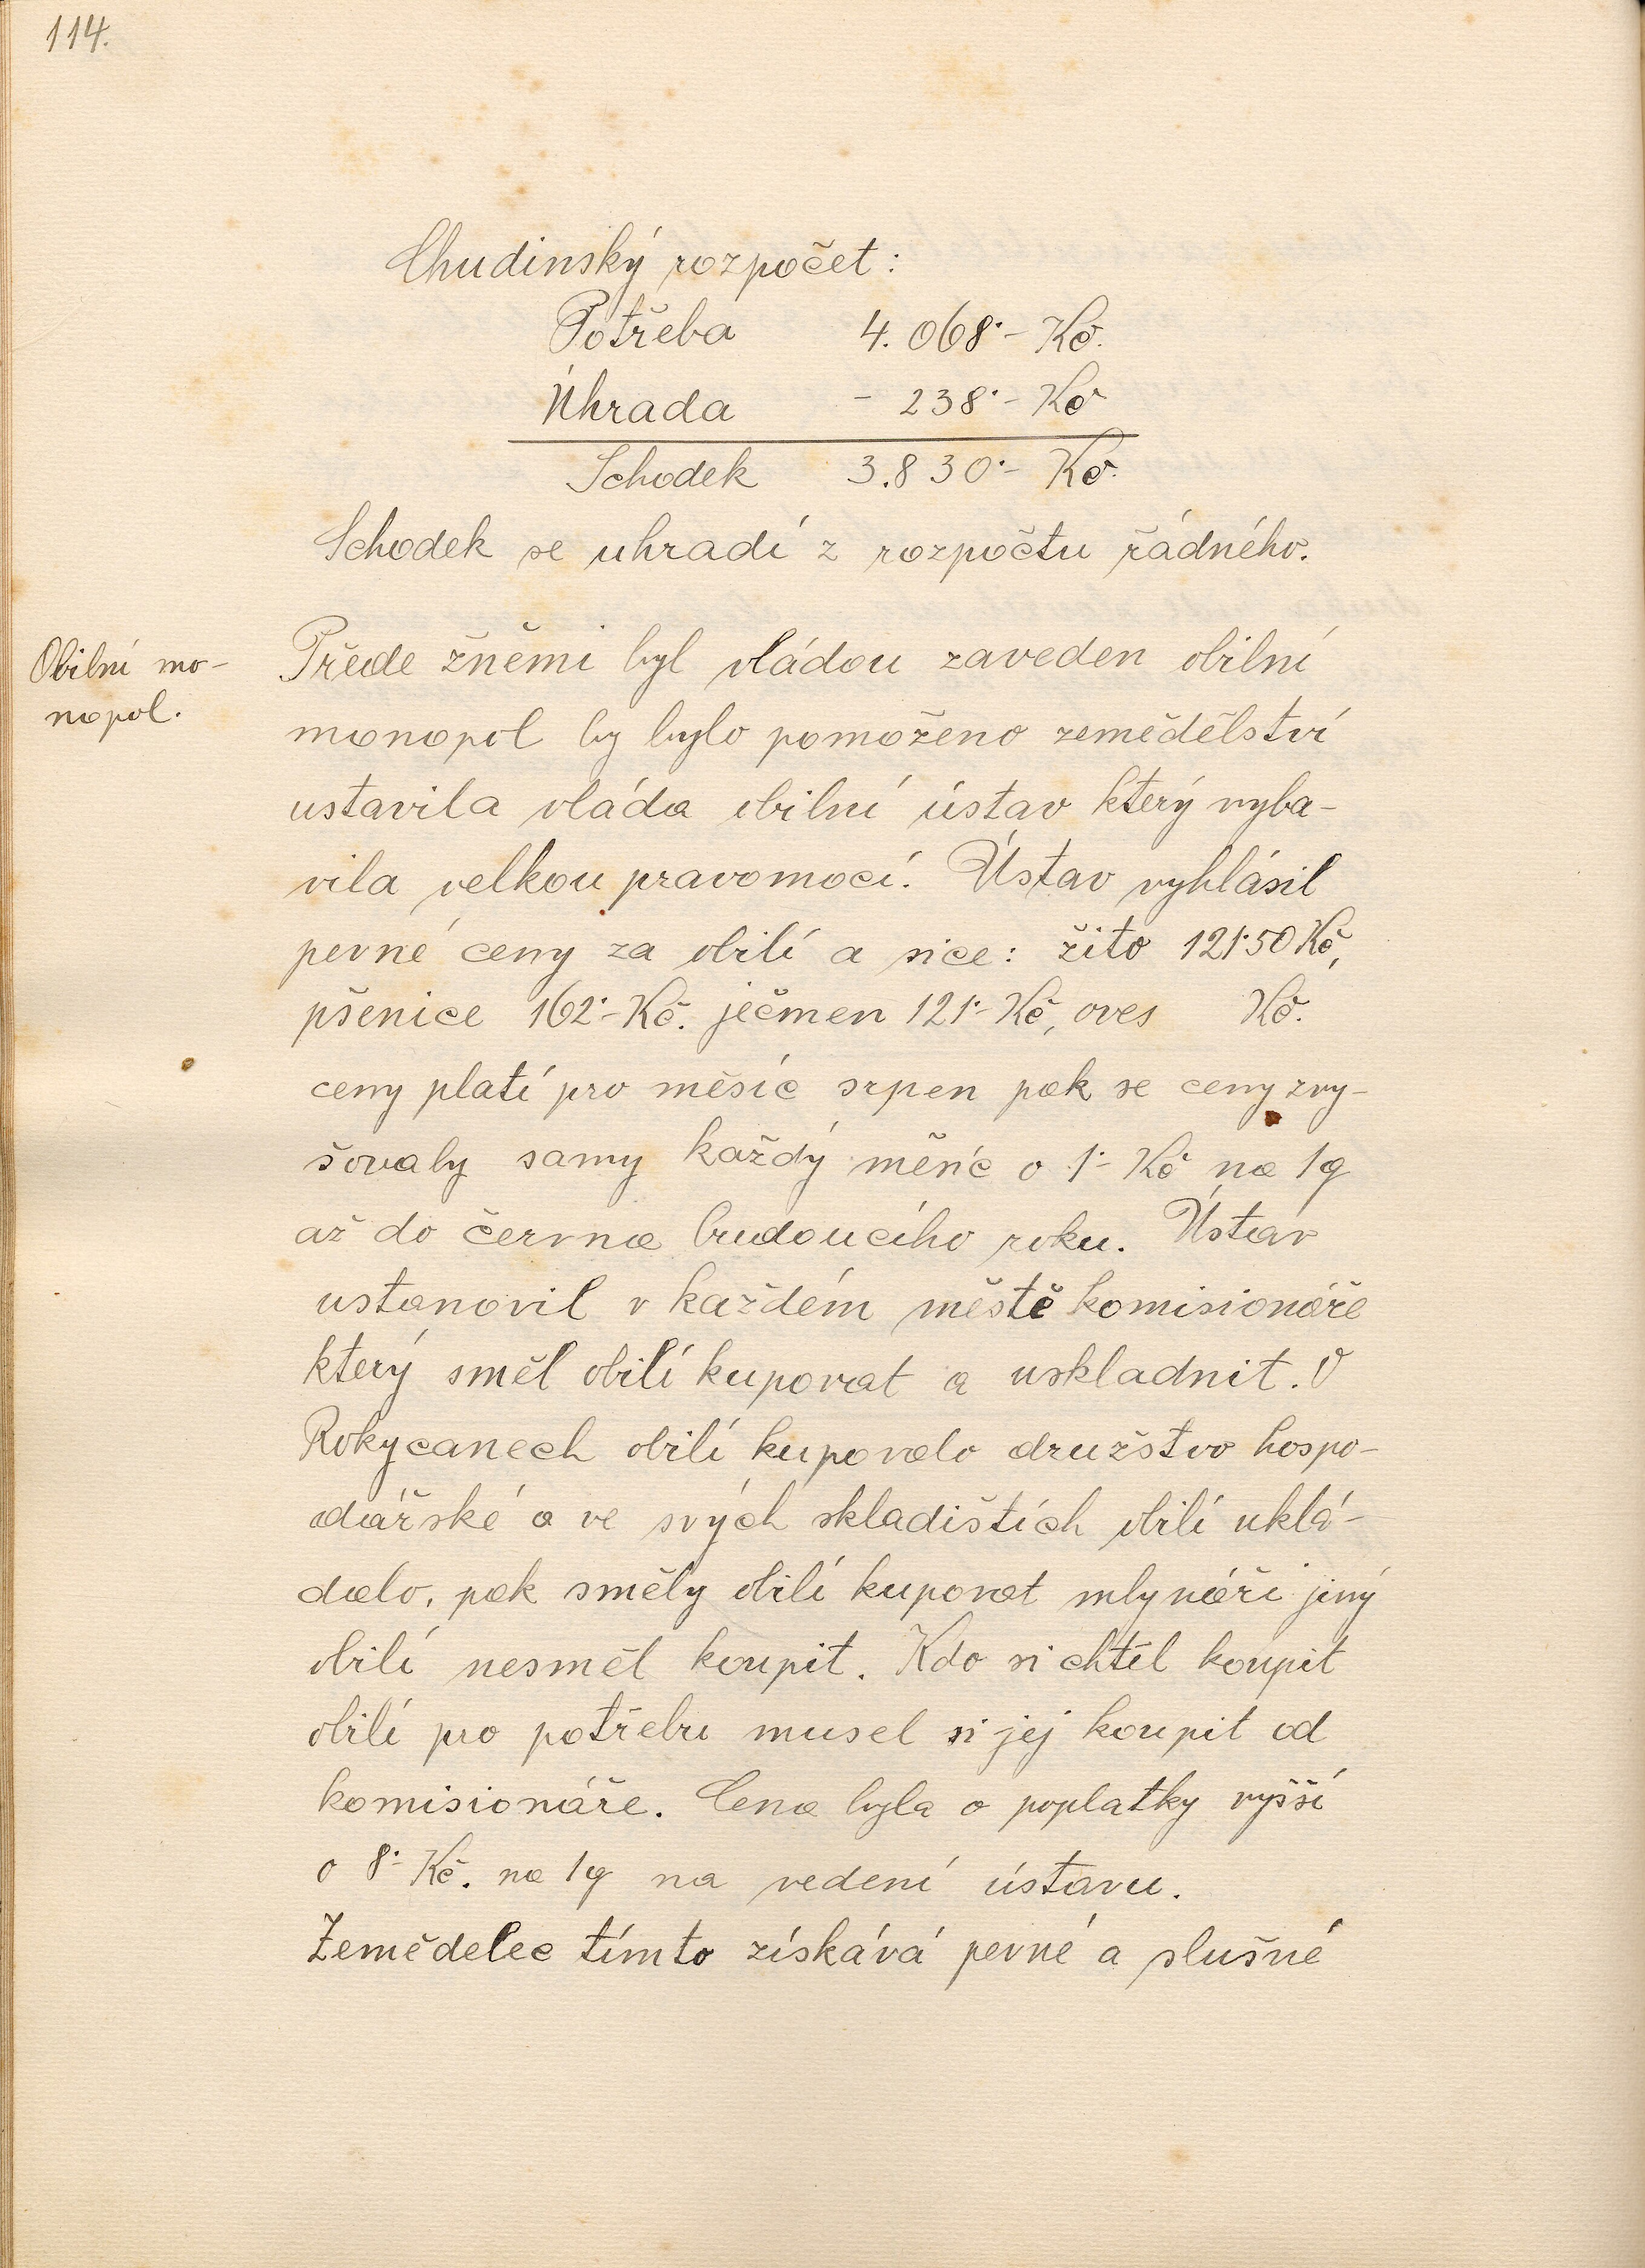 114.
Chudinský rozpočet:
Potřeba 4.068·- Kč.
Úhrada - 238·- Kč
Schodek 3.830·- Kč.
Schodek se uhradí z rozpočtu řádného.
Obilní mo-
nopol.
Přede žněmi byl vládou zaveden obilní
monopol by bylo pomoženo zemědělství
ustavila vláda obilní ústav který vyba-
vila velkou pravomocí. Ústav vyhlásil
pevné ceny za obilí a sice: žito 121·50 Kč,
pšenice 162·- Kč. ječmen 121·- Kč, oves Kč.
ceny platí pro měsíc srpen pak se ceny zvy-
šovaly samy každý měsíc o 1·- Kč na 1q
až do června budoucího roku. Ústav
ustanovil v každém městě komisionáře
který směl obilí kupovat a uskladnit. V
Rokycanech obilí kupovalo družstvo hospo-
dářské a ve svých skladištích obilí uklá-
dalo, pak směly obilí kupovat mlynáři jiný
obilí nesměl koupit. Kdo si chtěl koupit
obilí pro potřebu musel si jej koupit od
komisionáře. Cena byla o poplatky vyšší
o 8·- Kč. na 1q na vedení ústavu.
Zemědelec tímto získává pevné a slušné